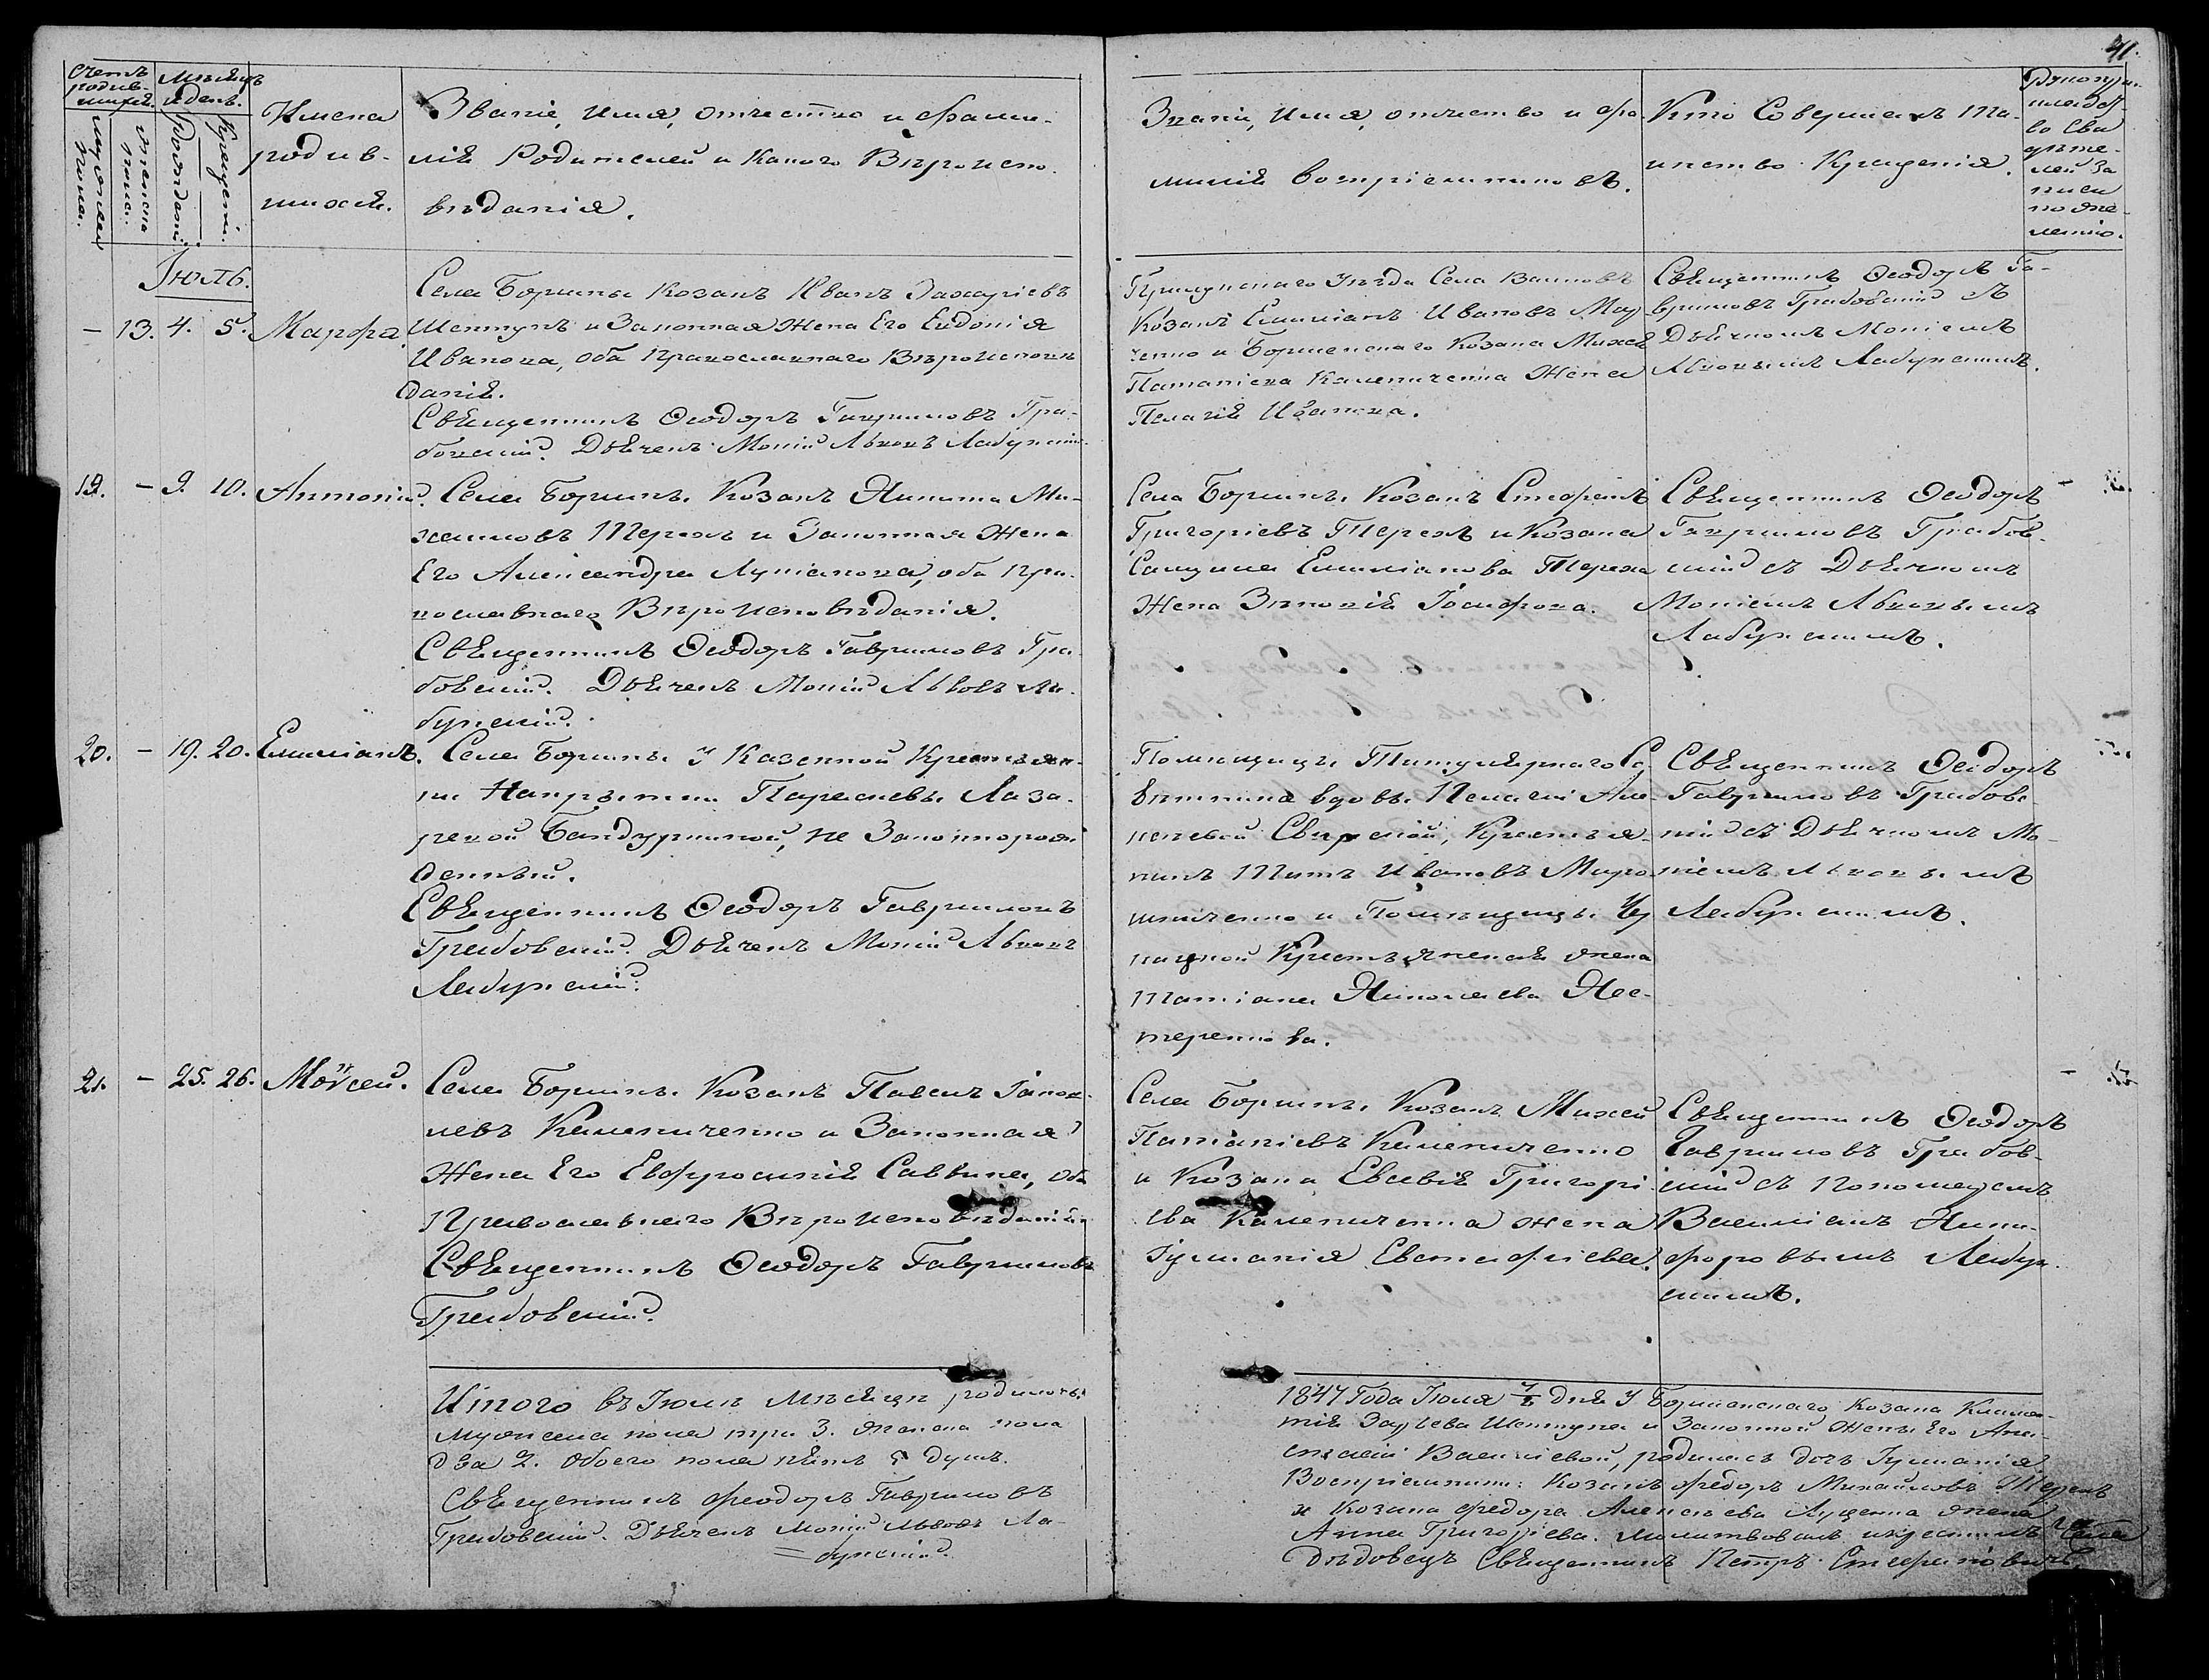 41.
Счетъ родив-шихся.
Мѣсяцъ и день.
мужеска пола.
женска пола.
Рожденія.
Крещенія.
Имена
родив-
шихся.
Званіе, имя, отчество и фами-
лія Родителей и Какого Вѣроиспо-
вѣданія.
Званіе, имя, отчество и фа-
милія воспріемниковъ.
Кто Совершалъ та-
инство Крещенія.
Рукопри-
кладст-
во Сви
дѣте-
лей За
писи
по же-
ланію.
Іюль.
— 13. 4. 5. Марфа.
Села Боршны Козакъ Иванъ Захаріевъ
Шептунъ и Законная Жена Его Евдокія
Иванова, оба православнаго Вѣроисповѣ
данія.
Священникъ Ѳеодоръ Гавриловъ Гра-
бовскій. Дьячекъ Мокій Львовъ Лабунскій
Прилукскаго Уѣзда Села
Козакъ Емиліанъ Ивановъ
ченко и Боршенскаго Козака Михея
Патапіева Калениченка Жена
Пелагія Иванова.
Священникъ Ѳеодоръ Га-
вриловъ Грабовскій съ
Дьячкомъ Мокіемъ
Львовымъ Лабунскимъ.
19. — 9. 10. Антоній.
Села Боршны. Козакъ Никита Ми-
хаиловъ Терехъ и Законная Жена
Его Александра Лукіанова, оба пра-
вославнаго Вѣроисповѣданія.
Священникъ Ѳеодоръ Гавриловъ Гра-
бовскій. Дьячекъ Мокій Львовъ Ла-
бунскій.
Села Боршны. Козакъ Стефанъ
Григоріевъ Терехъ и Козака
Емиліанова Тереха
Жена Зиновія Іосифова.
Священникъ Ѳеодоръ
Гавриловъ Грабов-
скій съ Дьячкомъ
Мокіемъ Львовымъ
Лабунскимъ.
20. — 19. 20. Емиліанъ.
Села Боршны у Казенной Крестьян-
ки Параскевы Лаза-
ревой Бандуркиной, не Законнорож
денный.
Священникъ Ѳеодоръ Гавриловъ
Грабовскій. Дьячекъ Мокій Львовъ
Лабунскій.
Помѣщицы Титулярнаго Со
вѣтника вдовы Пелагіи Але-
ксѣевой Свирской, Крестья-
нинъ Титъ Ивановъ Миро
шниченко и Помѣщицы
Крестьянина жена
Татіана Николаева Нес-
теренкова.
Священникъ Ѳеодоръ
Гавриловъ Грабовс-
кій съ Дьячкомъ Мо-
кіемъ Львовымъ
Лабунскимъ.
21. — 25. 26. Моѵсей.
Села Боршны. Козакъ Павелъ Іаков-
левъ Калениченко и Законная
Жена Его Евфросинія Саввина, оба
Православнаго Вѣроисповѣданія.
Священникъ Ѳеодоръ Гавриловъ
Грабовскій.
Села Боршны. Козакъ Михей
Патапіевъ Калениченко
и Козака Евсевія Григорі
ева Каленичена жена
Іуліанія Евстафіева.
Священникъ Ѳеодоръ
Гавриловъ Грабов-
скій съ Пономаремъ
Василіемъ Ники-
форовымъ Лабун-
скимъ.
Итого въ Іюлѣ Мѣсяцѣ родилось:
Мужеска пола три 3. женска пола
два 2. Обоего пола пять 5 душъ.
Священникъ Феодоръ Гавриловъ
Грабовскій. Дьячекъ Мокій Львовъ Ла-
бунскій.
1847 Года Іюля 7/8 Дня у Боршенскаго Козака Климен-
тія Шептуна и Законной Жены Его Ана-
стасіи Василіевой, родилась дочь Іуліанія.
Воспріемники: Козакъ Федоръ Михайловъ Терехъ
и Козака Федора Алексѣева Луценка жена
Анна Григоріева. Молитвовалъ и крестилъ Села
Дѣдовецъ Священникъ Петръ Стефановичъ